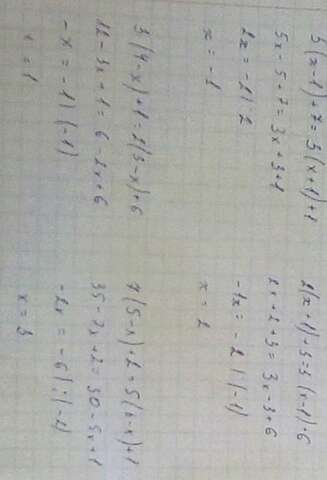 5(x-1)+7=3(x+1)+1
5x-5+7=3x+3+1
2x=-2|:2
x=-1
2(x+1)+3=3(x-1)+6
2x+2+3=3x-3+6
-1x=-2|:(-1)
x=2
3(4-x)+1=2(3-x)+6
12-3x+1=6-2x+6
-x=-1|(-1)
x=1
7(5-x)+2=5(6-x)+1
35-7x+2=30-5x+1
-2x=-6|:(-2)
x=3